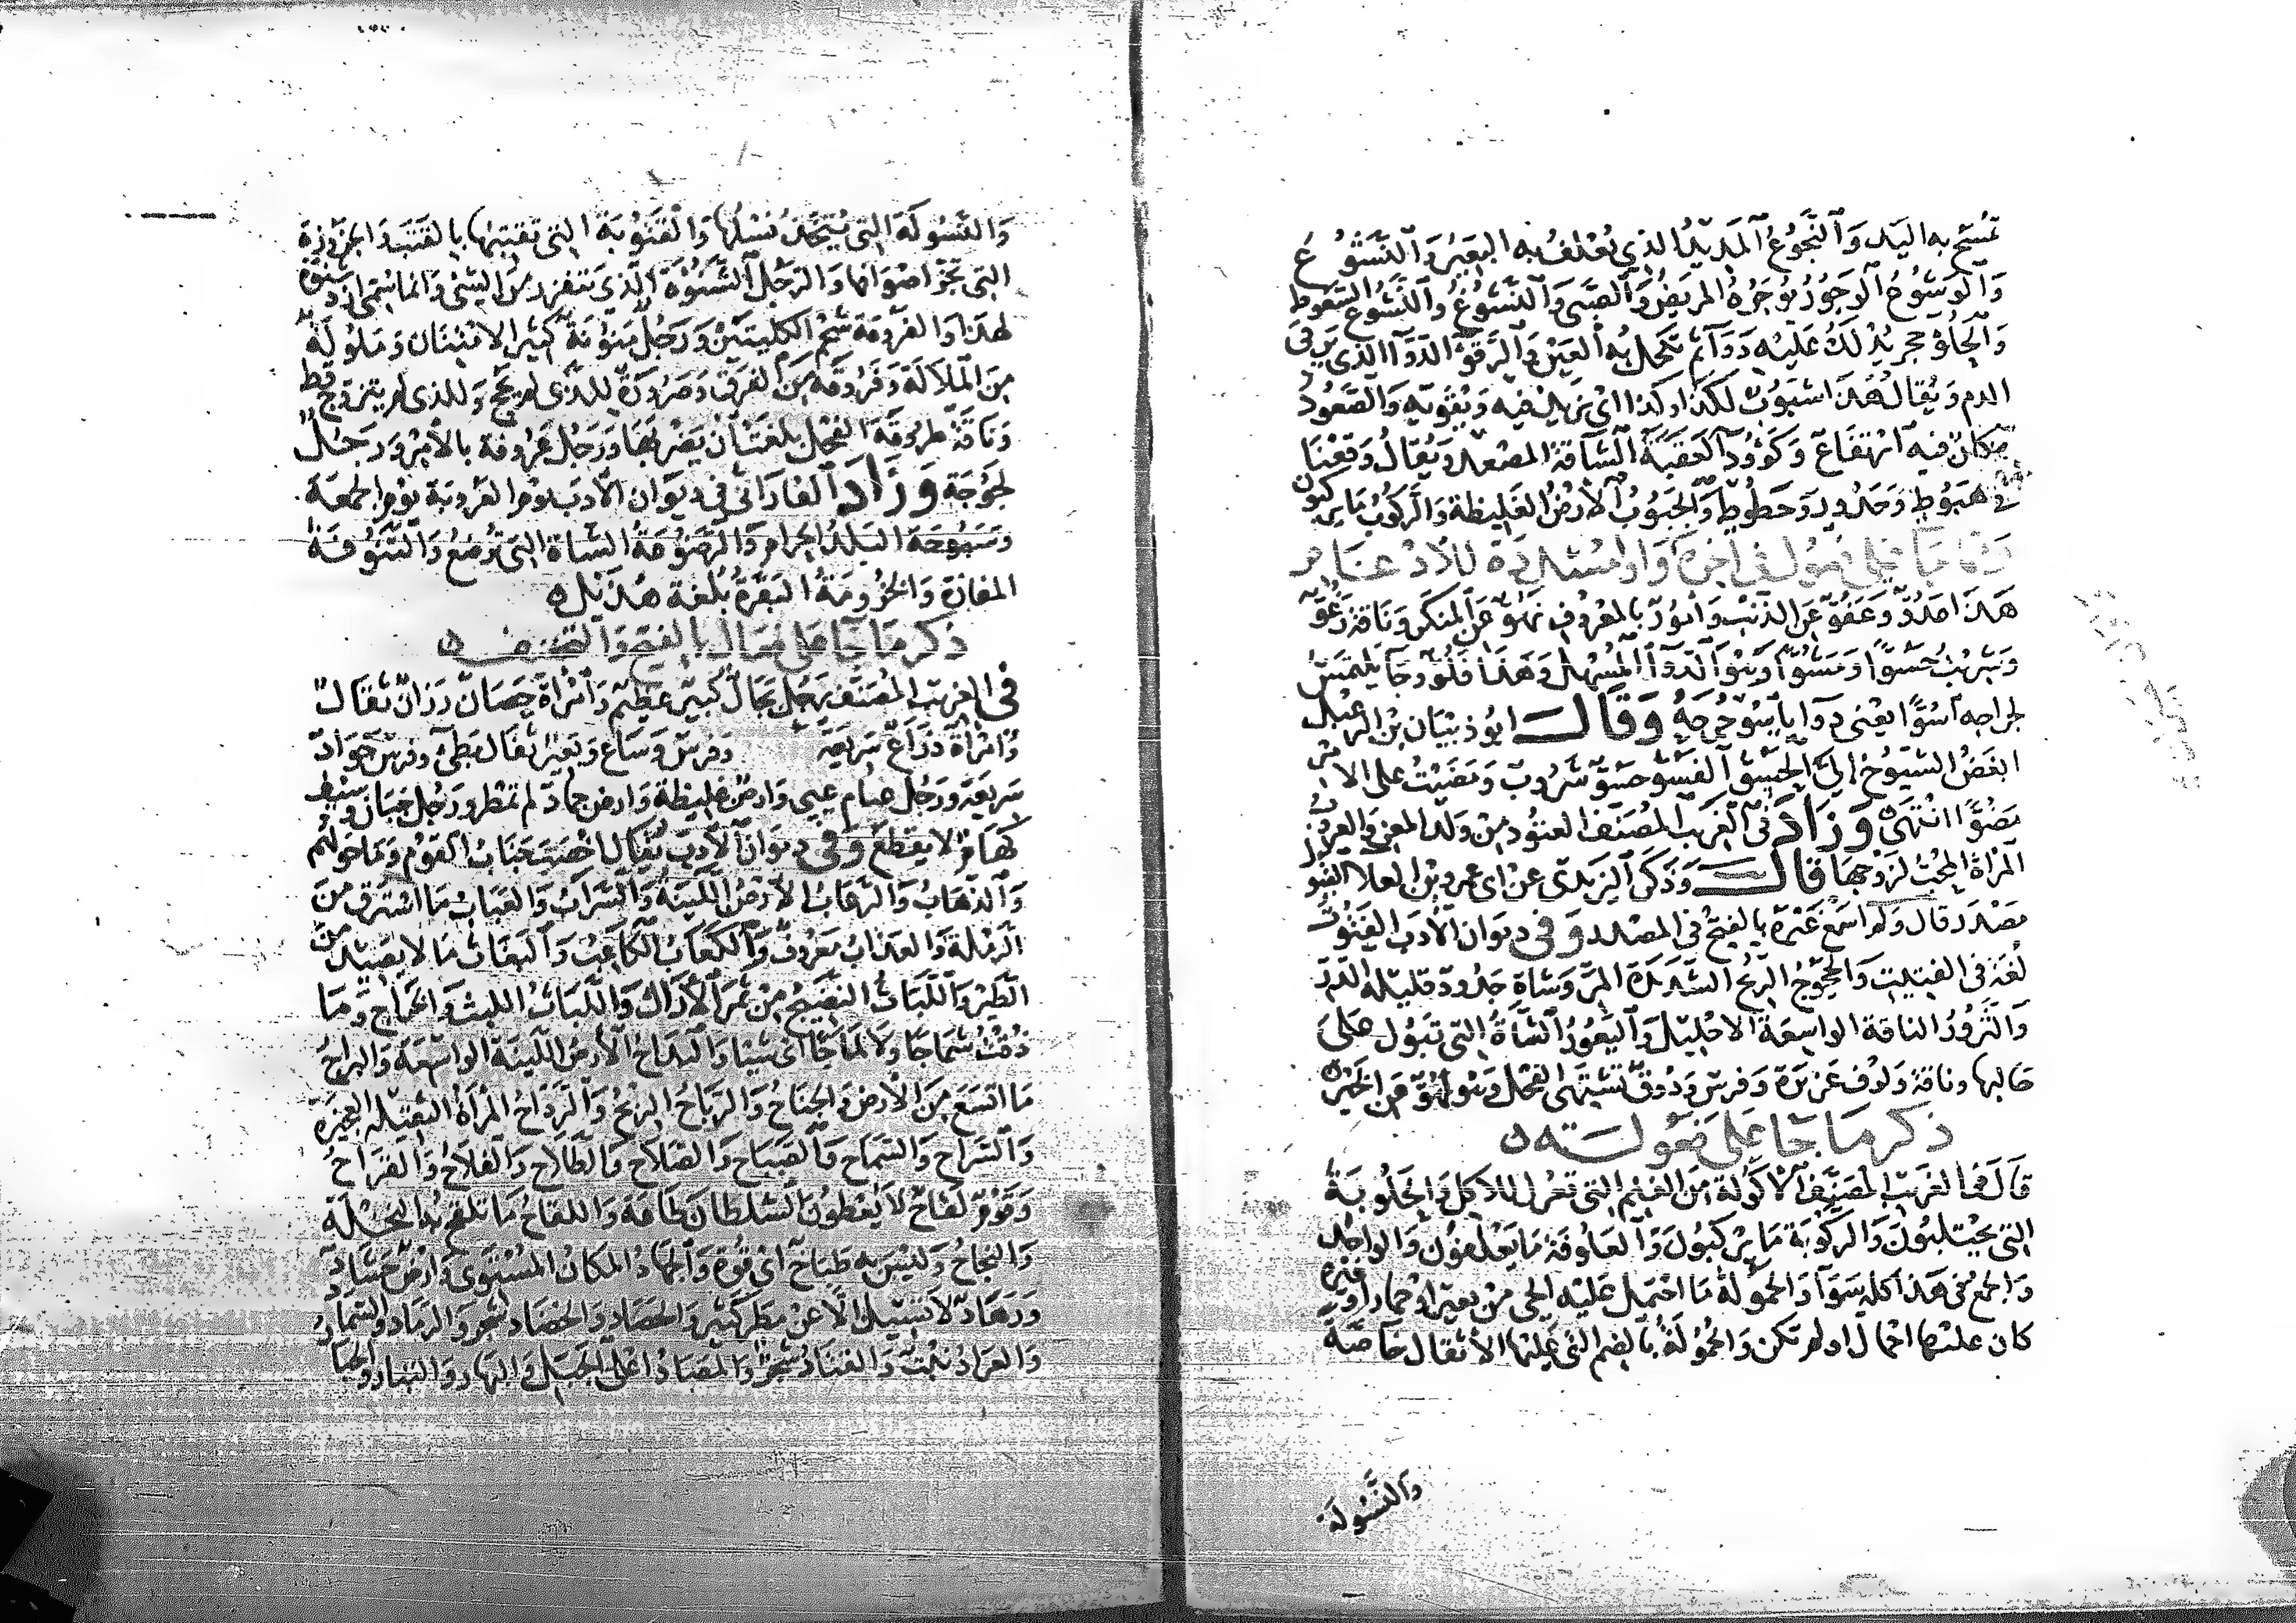 تمسح به اليد والنجوع المديد الذي تعلف به البعير والنشوع
والوشوع الوجور يوجره المريض والصبي والنشوغ والنشوع السعوط
والحلوء حجر يدلك عليه دواء ثم تكحل به العين والرقوء الدواء الذي يرقي
الدم ويقال هذا شبوب لكذا وكذا اي يزيد فيه ويقويه والصعود
مكان فيه ارتفاع وكؤود العقبة الشاقة المصعد ويقال وقعنا
في هبوط وحدور وحطوط والجبوب الارض الغليظة والركوب ما يركبون
هذا عدو وعفو عن الذنب وامور بالمعروف نهو عن المنكر وناقة رغو
وشربت حسوا ومشوا وهو الدواء المسهل وهذا فلو وجاء يلتمس
لجراحه اسوا يعني دواء ياسو جرحه وقال ابو ذبيان بن الرعبل
ابغض الشيوخ الي الحسو الفسو حسو شروب ومضيت على الامر
مضوا انتهى وزاد في الغريب المصنف العتود من ولد المعز والعروب
المراة المحب لزوجها قال وذكر اليزيدي عن ابي عمرو بن العلا القبول
مصدر قال ولم اسمع غيره بالفتح في المصدر وفي ديوان الادب
لغة في الفتيت والحجوج الريح الشديدة المر وشاة جدود قليلة الدر
والثرور الناقة الواسعة الاحليل واليعور الشاة التي تبول على
حالبها وناقة ولوف غزيرة وفرس ودوق تشتهي الفحل وهو لهو عن الخير
ذكر ما جا على فعولة
قال في الغريب المصنف الاكولة من الغنم التي تعزل للاكل والحلوبة
التي يحتلبون والركوبة ما يركبون والعلوفة ما يعلفون والواحد
والجمع في هذا كله سوا والحمولة ما احتمل عليه الحي من بعير او حمار او غيره
كان عليها احمال او لم تكن والحمولة بالضم التي عليها الاثقال خاصة
والنسولة
والنسولة التي يتخذ نسلها والقتوبة التي تقتبها بالقتب والجزوزة
التي تجز اصوافها والرجل الشنوءة الذي يتقزز من الشيء وانما سمي ازد شنوءة
لهذا والفروقة شحم الكليتين ورجل منونة كثير الامتنان وملولة
من الملالة وفروقة من الفرق وصرورة للذي لم يحج وللذي لم يتزوج قط
وناقة طروقة الفحل بلغت ان يضربها ورجل عروفة بالامر ورجل
لجوجة وزاد الفارابي في ديوان الادب يوم العروبة يوم الجمعة
وسبوحة البلد الحرام والرضوعة الشاة التي ترضع والتنوفة
المفازة والخزومة البقرة بلغة هذيل
ذكر ما جا على فعال بالفتح والتخفيف
في الغريب المصنف رجل بجال كبير عظيم وامراة حصان رزان ثقال
وامراة ذراع سريعة وفرس وساع وبعير ثقال بطي وفرس جواد
سريعة ورجل عبام عيي وارض غليظة وارض جماد لم تمطر ورجل جبان وسيف
كهام لا يقطع وفي ديوان الادب يقال اخصب جناب القوم وما حولهم
والذهاب والرغاب الارض اللينة والشراب والعباب ما استرق من
الرملة والعذاب معروف والكعاب الكاعب والبغاث ما لا يصيد من
الطير والكباث النضيج من ثمر الاراك واللباث اللبث وما
ذقت شماجا ولا لماجا اي شيا والبداح الارض اللينة الواسعة والبراح
ما اتسع من الارض والجناح والرباح الربح والرداح المراة الثقيلة العجيزة
والسراح والسماح والصباح والصلاح والطلاح والفلاح والقراح
وقوم لقاح لا يعطون السلطان طاعة واللقاح ما تلقح به النخلة
والنجاح وليس به طباخ اي قوة والجهاد المكان المستوي وارض حشاد
وزهاد لا تسيل الا عن مطر كثير والحصاد والخضاد شجر والرماد والسماد
والعراد نبت والقتاد شجر والمصاد اعلى الجبل والنهاد